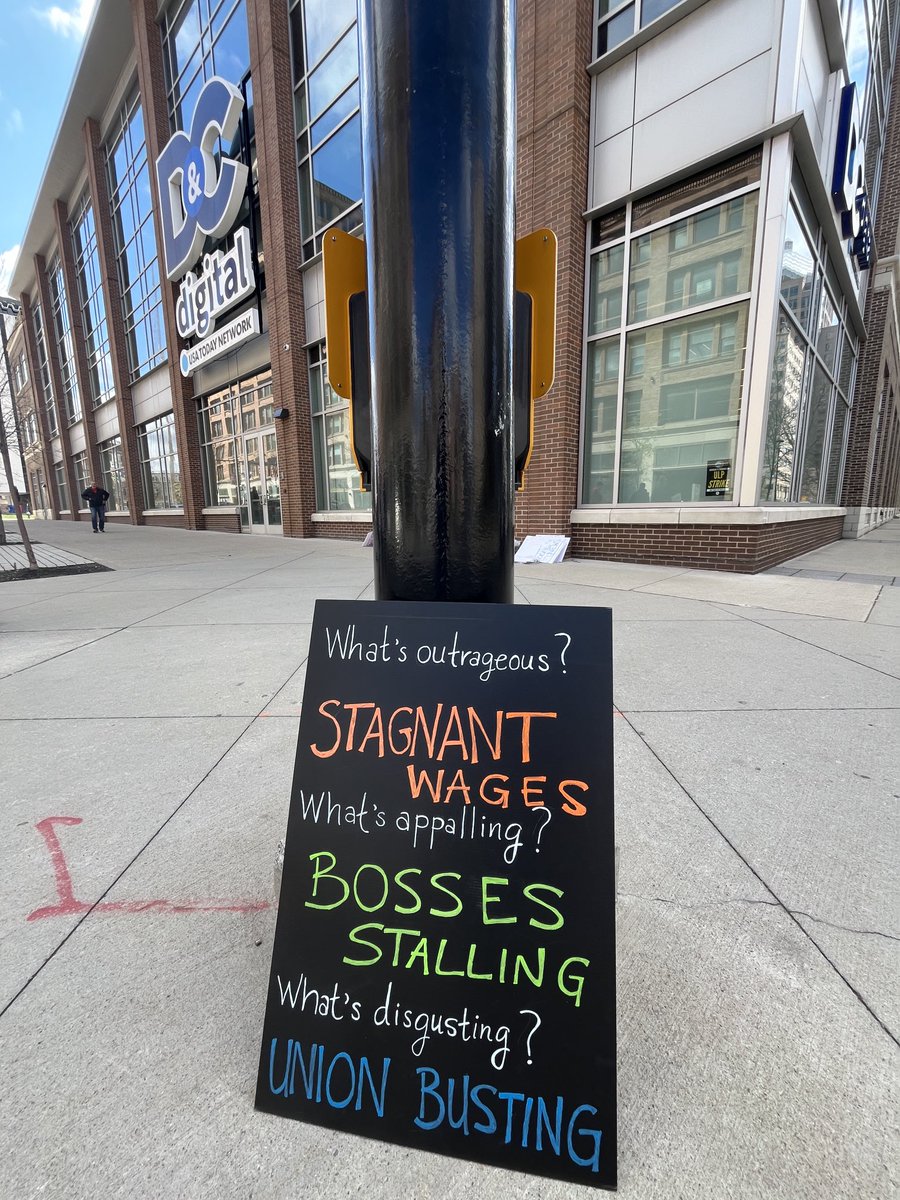 D&C
digital
USA TODAY NETWORK
ULP
STRIKE
What's outrageous?
STAGNANT
WAGES
What's appalling?
BOSSES
STALLING
What's disgusting?
UNION BUSTING